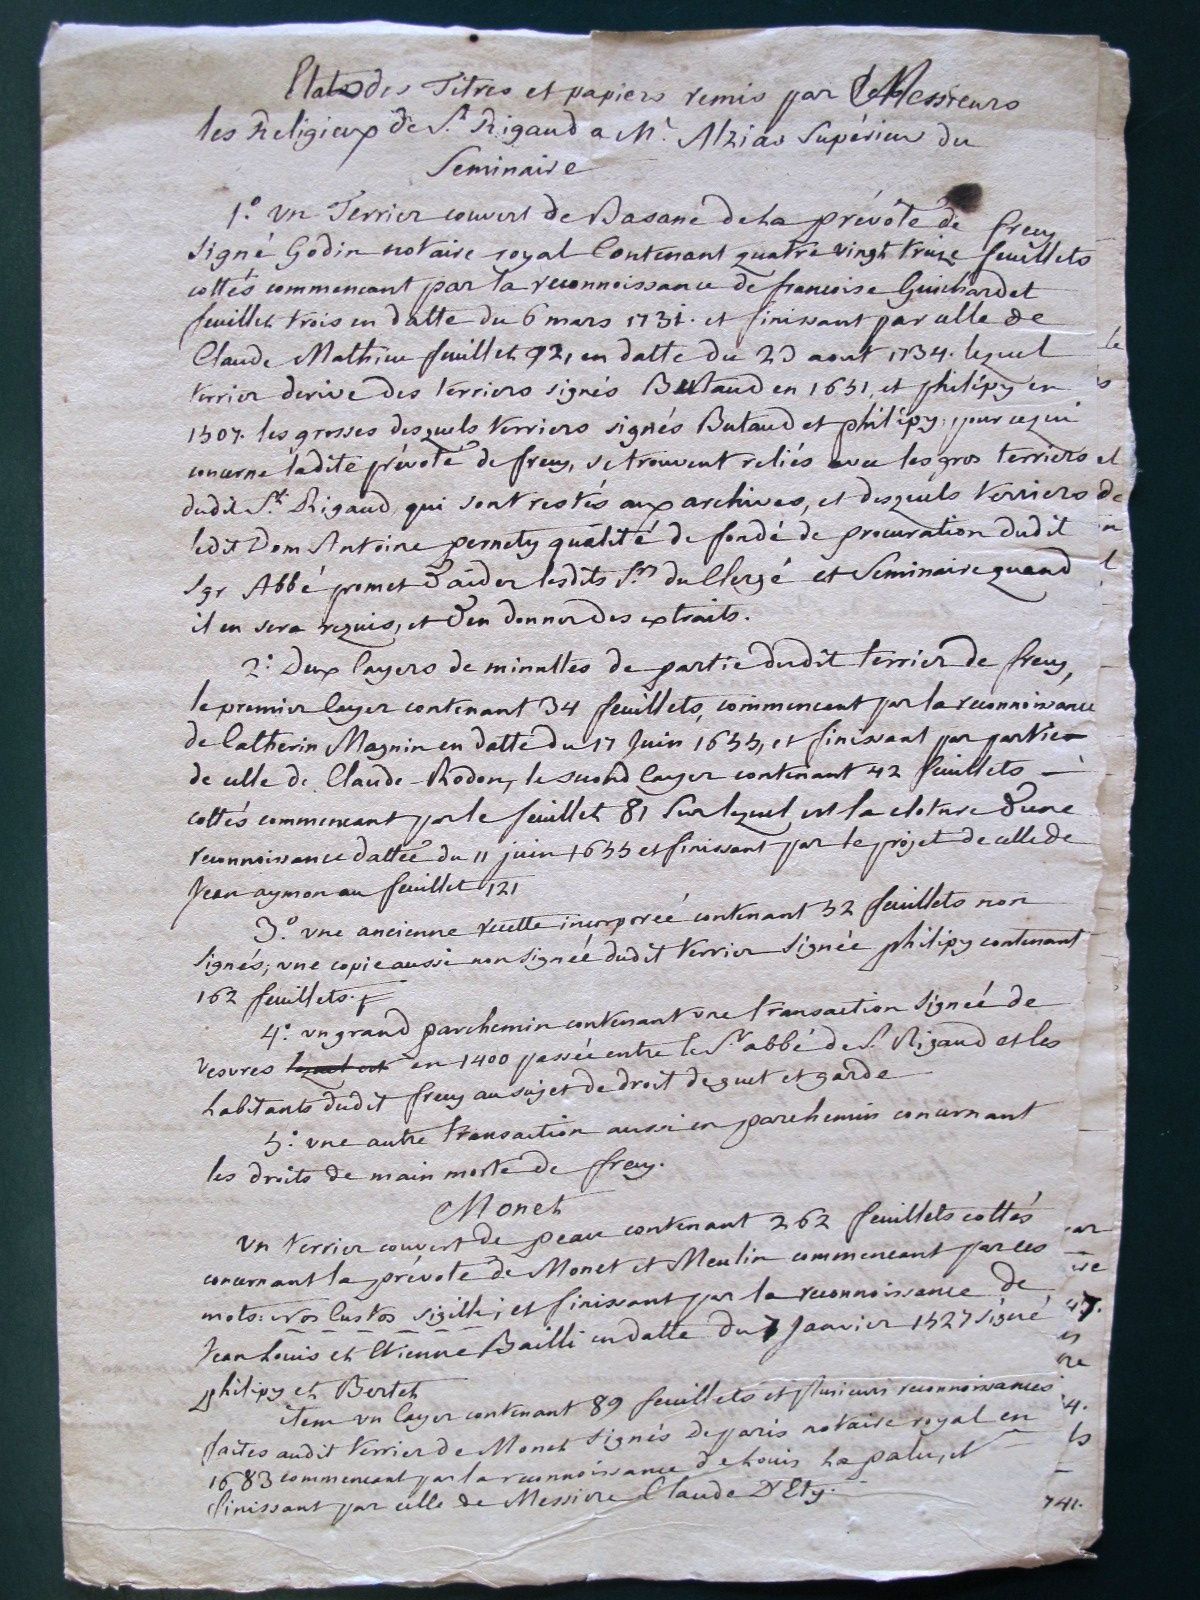 Etats des Titres et papiers remis par Messieurs
les Religieux de St Rigaud a Mr. Alzias Supérieur du
Seminaire
1.º vn Terrier couvert de Basane de La prévôté de freny
signé Godin notaire royal Contenant quatre vingt treize feuillets
cottés commencant par la reconnoissance de francoise Guichardet
feuillet trois en datte du 6 mars 1731. et finissant par celle de
Claude Mathieu feuillet 92, en datte du 23 aout 1734. lequel
terrier derive des terriers signés Butaud en 1651, et philipy en
1507. les grosses desquels terriers signés Butaud et philipy, pour ce qui
concerne ladite prévôté de freny, se trouvent reliés avec les gros terriers
dudit St. Rigaud, qui sont restés aux archives, et desquels terriers
ledit Dom Antoine pernety qualité de fondé de procuration dudit
Sgr Abbé promet d'aider lesdits Srs du Clergé et Seminaire quand
il en sera requis, et d'en donner des extraits.
2.º Deux layers de minuttes de partie dudit terrier de freny,
le premier layer contenant 34 feuillets, commencent par la reconnoissance
de Catherin Magnin en datte du 17 Juin 1655, et finissant par partie
de celle de Claude Rodon, le second layer contenant 42 feuillets
cottés commencant par le feuillet 81 Sur lequel est la cloture d'une
reconnoissance dattée du 11 juin 1655 et finissant par le projet de celle de
Jean aymon au feuillet 121
3.º vne ancienne recette incorporée contenant 52 feuillets non
signés; vne copie aussi non signée dudit terrier signée philipy contenant
162 feuillets.
4.º vn grand parchemin contenant vne transaction signée de
vesvres lequel est en 1400 passée entre le Sr abbé de St Rigaud et les
habitants dudit freny au sujet de droit de guet et garde
5.º vne autre transaction aussi en parchemin concernant
les droits de main morte de freny.
Monet
Vn terrier couvert de peau contenant 262 feuillets cottés
concernant la prévoté de Monet et Meulin commencant par ces
mots: Nos Custos sigilli; et finissant par la reconnoissance de
Jean Louis et Etienne Bailli en datte du 7 Janvier 1527 signé
philipy et Bertet
item vn layer contenant 89 feuillets et plusieurs reconnoissances
faites audit terrier de Monet signés de paris notaire royal en
1683 commencant par la reconnoissance de Louis La palu, et
finissant par celle de Messire Claude D'Ety.
741.